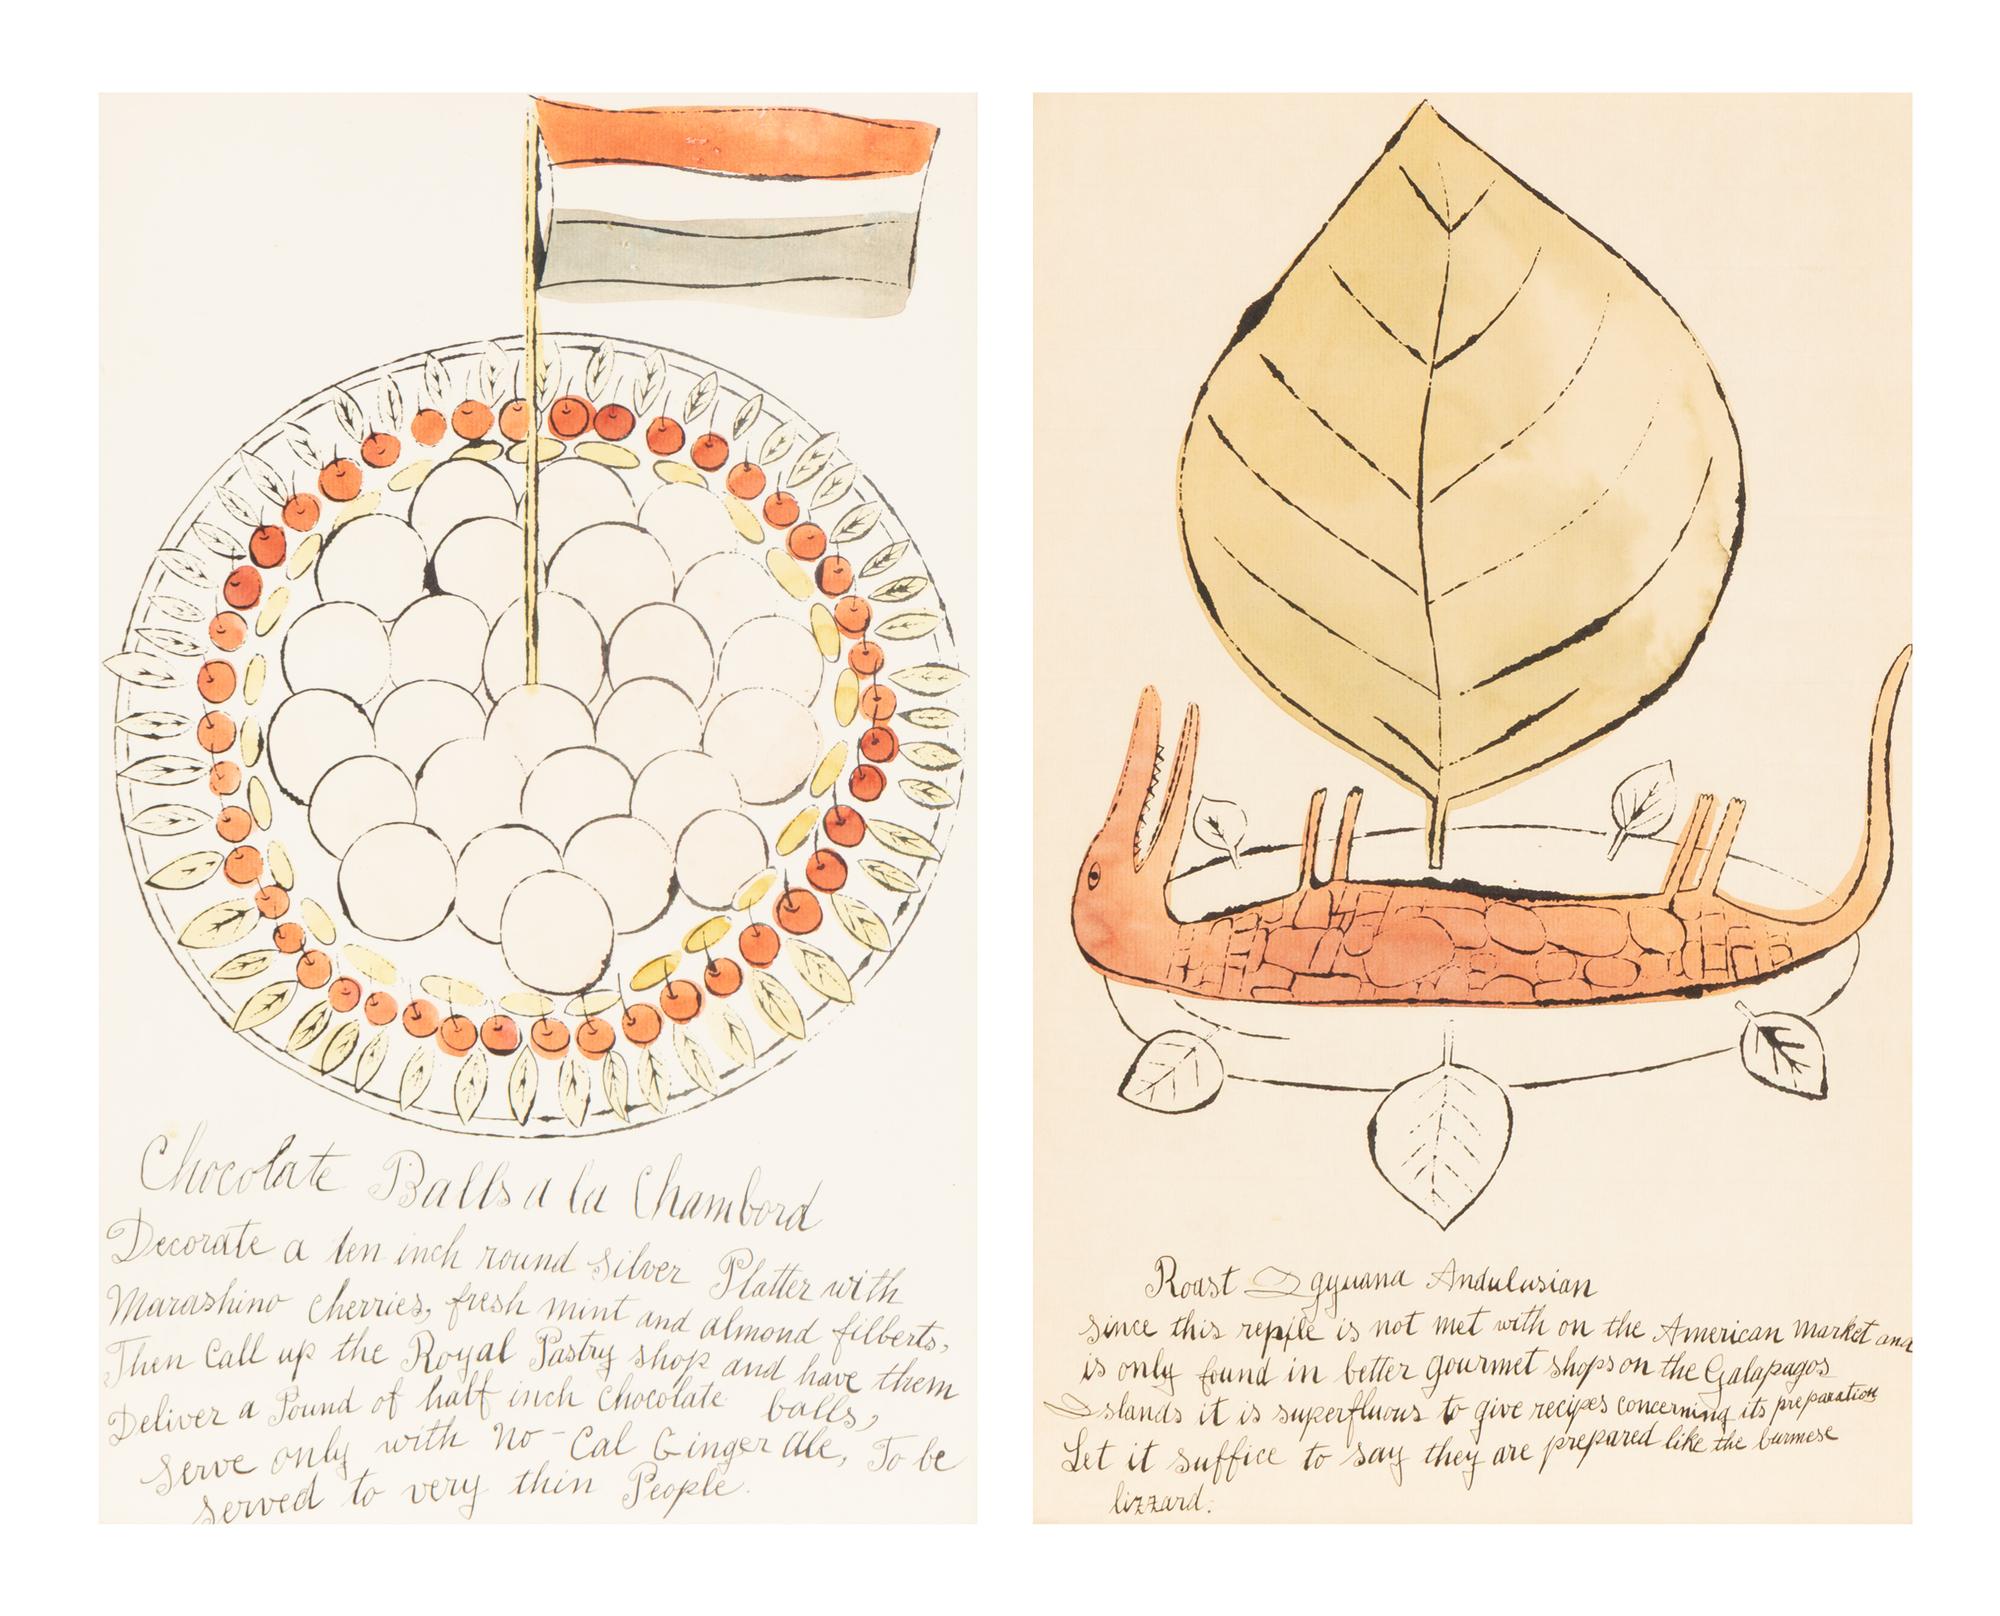 Chocolate Balls a la Chambord
Decorate a ten inch round silver Platter with
Marashino cherries, fresh mint and almond filberts,
Then Call up the Royal Pastry shop and have them
Deliver a Pound of half inch chocolate balls,
serve only with No-Cal Ginger Ale, To be
served to very thin People.
Roast Igyuana Andulusian
since this reptile is not met with on the American market and
is only found in better gourmet shops on the Galapagos
Islands it is superfluous to give recipes concerning its preparation
Let it suffice to say they are prepared like the burmese
lizzard.